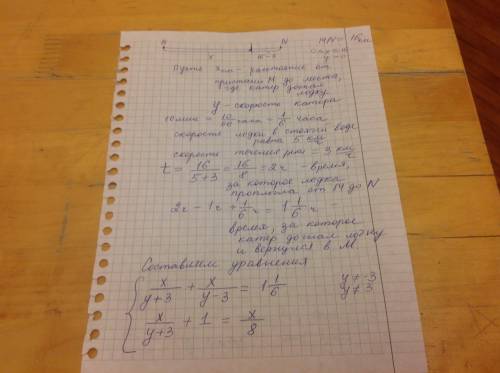 M N MN = 16км
x 16-x
Пусть x км - расстояние от
пристани М до места,
где катер догнал
лодку
y - скорость катера
10 мин = 10/60 часа = 1/6 часа
скорость лодки в стоячей воде
равна 5 км/ч
скорость течения реки = 3 км/ч
t = 16/(5+3) = 16/8 = 2ч - время,
за которое лодка
проплыла от М до N
2ч - 1ч + 1/6 ч = 1 1/6 ч
время, за которое
катер догнал лодку
и вернулся в М.
Составляем уравнения
x/(y+3) + x/(y-3) = 1 1/6 y ≠ -3
y ≠ 3
x/(y+3) + 1 = x/8